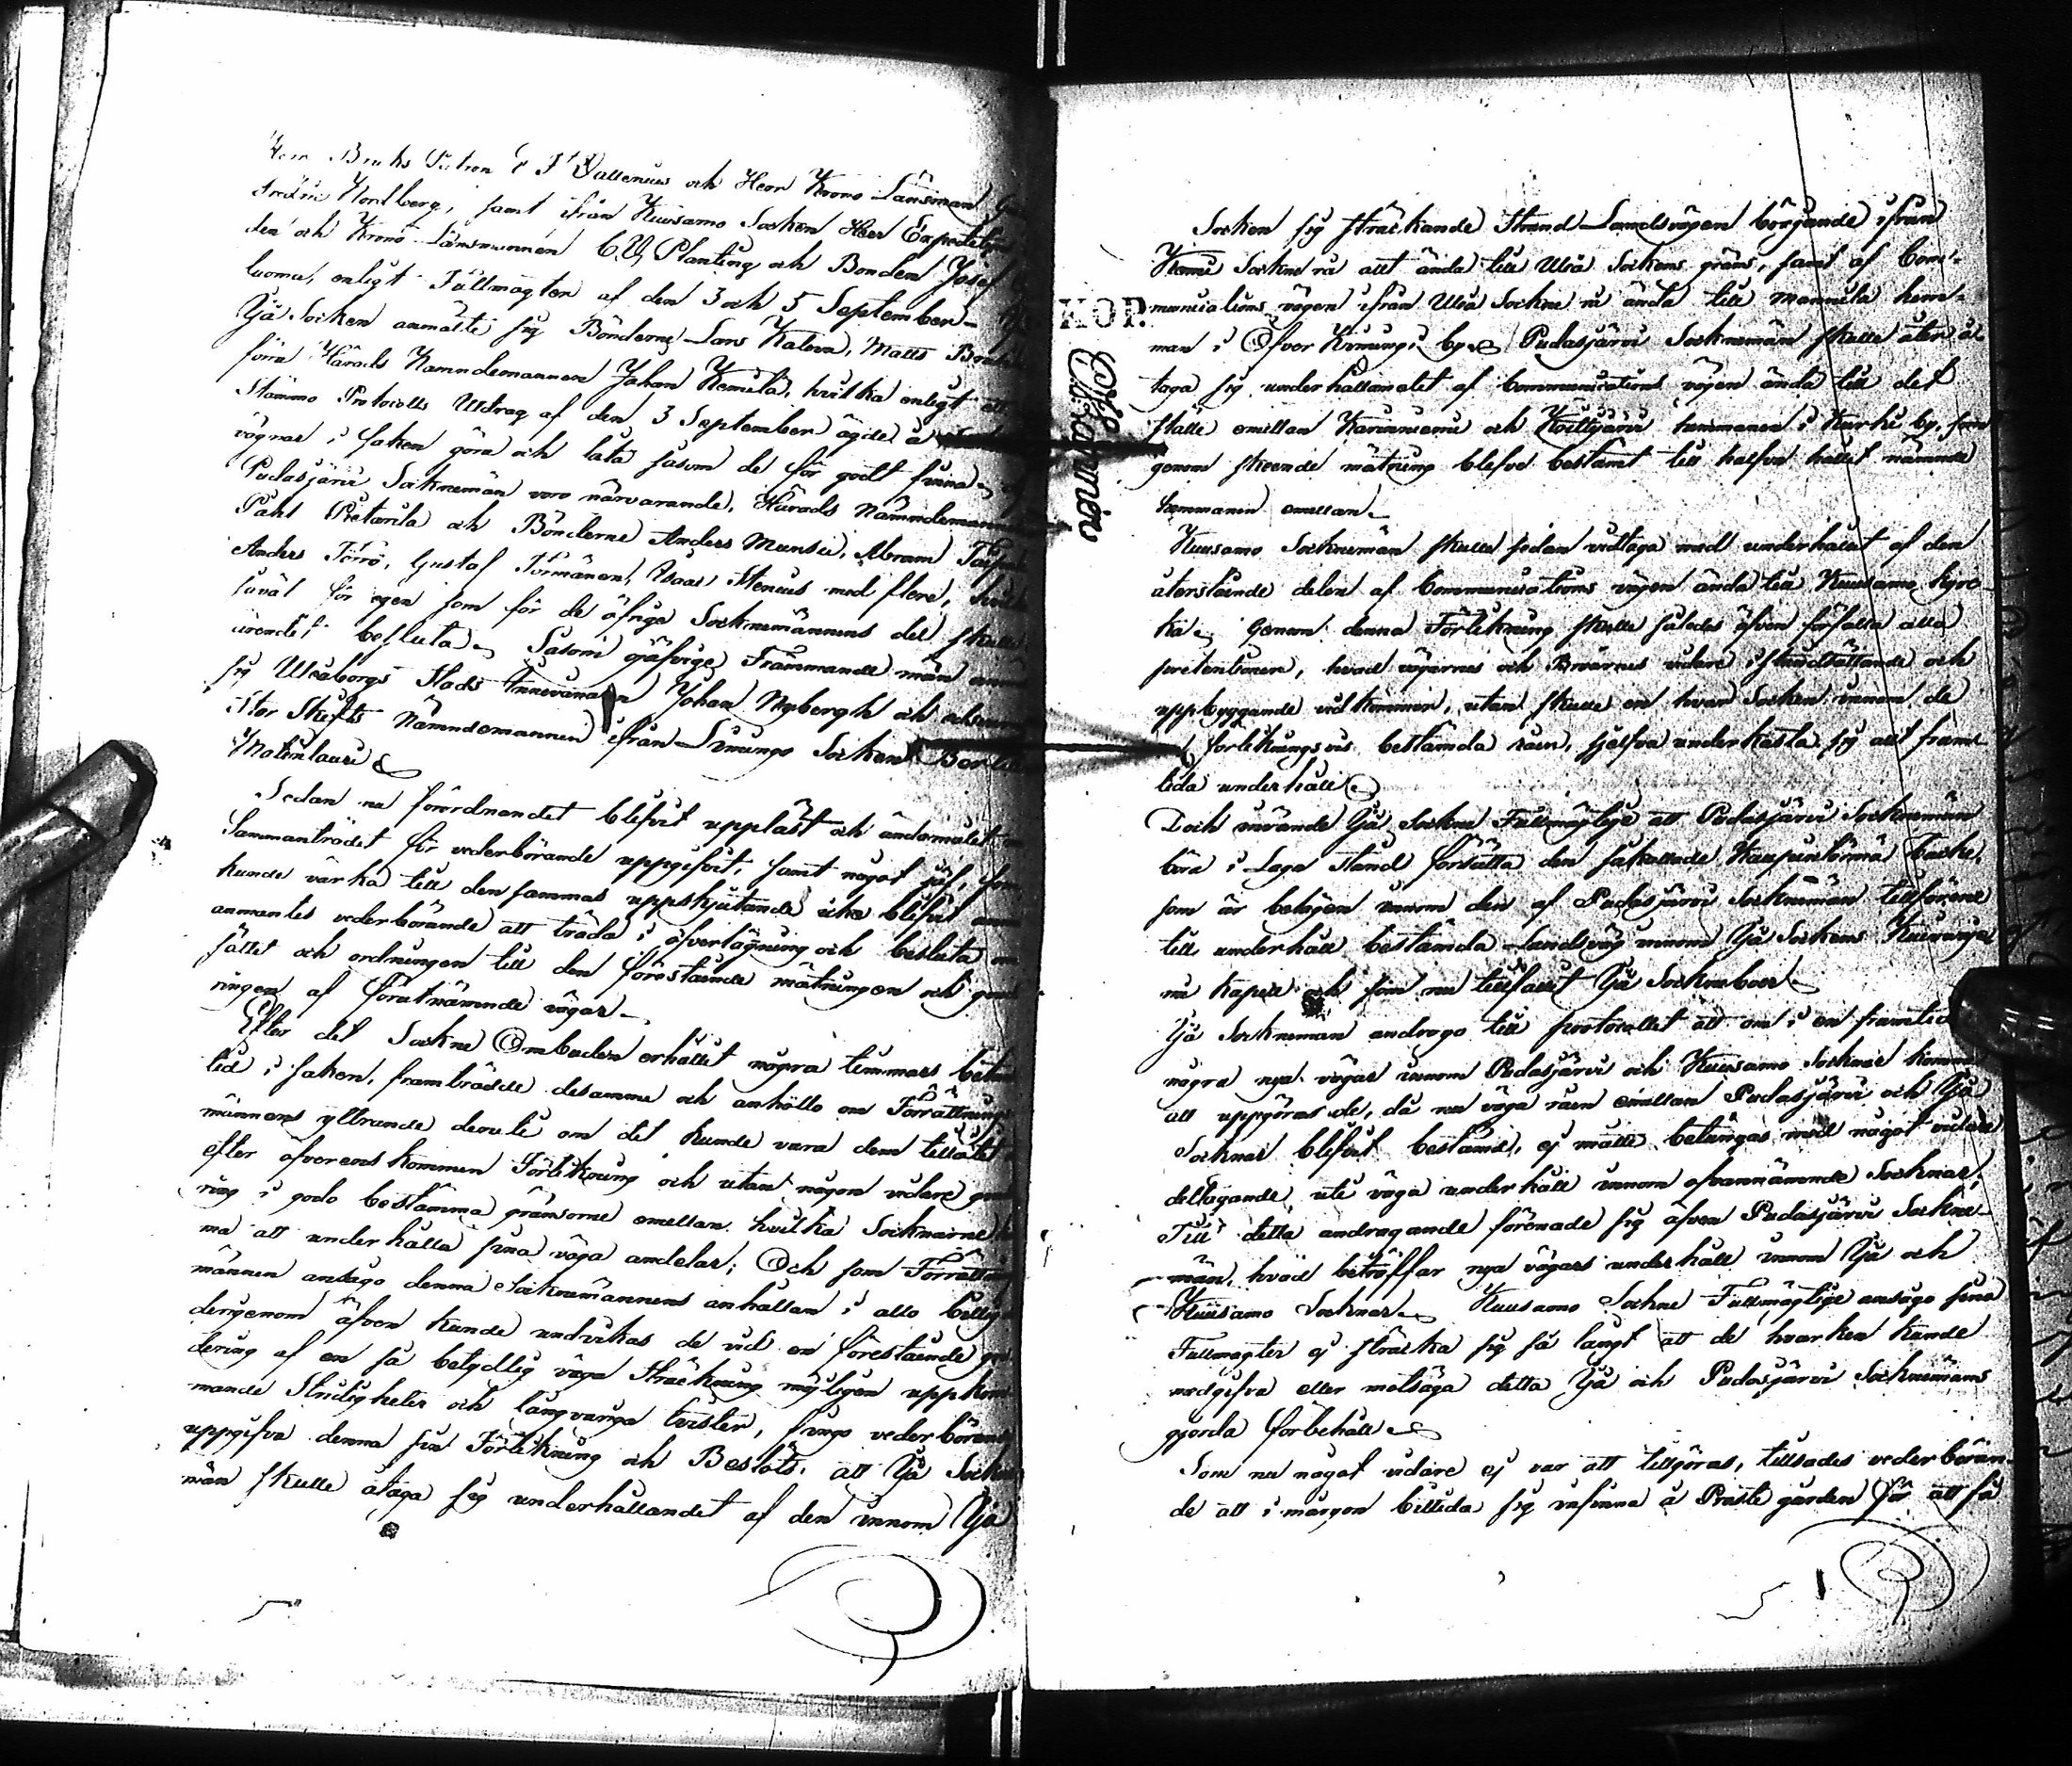 Herr Bruks Patron E J Vallenius och Herr Krono Länsman
Fredric Nordberg, samt ifrån Kuusamo Socken Herr Expeditions
den och Krono Länsmannen C. W. Planting och Bonden Josef
luoma, enligt Fullmagter af den 3 och 5 September
Ijå Socken anmälte sig Bönderne Lars Kaleva, Matts
förra Härads Namndemannen Johan Kemilä, hvilka enligt
Stämmo Protocolls Utdrag af den 3 September ägde å
vägnar i saken göra och låta såsom de för godt finna
Pudasjärvi Socknemän voro närvarande, Härads Nämndemannen
Påhl Pietarila och Bönderne Anders Mursu, Abram
Anders Törrö, Gustaf Törmänen, Isaac Stenius med flere,
såväl för egen som för de öfrige Socknemännens del skulle
ärendet besluta. Såsom ojäfvige Främmande män
sig Uleåborgs Stads Innevånaren Johan Nybergh och
Stor Skifts Nämndemannen ifrån Limingo Socken
Matinlauri
Sedan nu förordnandet blifvit uppläst och ändamålet
Sammanträdet för vederbörande uppgifvit, samt något jäf, som
kunde värka till den sammas uppskjutande icke blifvit
anmantes vederbörande att träda i öfverlägning och besluta om
sättet och ordningen till den förestående mätningen och
ringen af förutnämnde vägar
Efter det Sockne Ombuden erhållet några timmars
tid i saken, framträdde desamma och anhöllo om Förrättnings
männens yttrande deruti om det kunde vara dem tillåtet
efter öfverenskommen Förlikning och utan någon vidare
ring i godo bestämma gränsorne emellan hvilka Socknarne
ma att underhålla sina väga andelar; Och som Förrättnings
männen ansågo denna Socknemännens anhållan i allo billig
derigenom äfven kunde undvikas de vid en förestående
dering af en så betydlig väga sträckning möjligen uppkom
mande Stridigheter och långvariga tvister, fingo vederbörande
uppgifva denna sin Förlikning och Beslöts, att Ijå Sockne
män skulle åtaga sig underhållandet af den innom Ijå
Socken sig sträckande Strand Landsvägen börjande ifrån
Kemi Sockne rå allt ända till Uleå Sockens gräns, samt af Com-
munications vägen ifrån Uleå Sockne rå ända till Mannila hem-
man i Öfver Kiiminki by. Pudasjärvi Socknemän skulle åter å-
taga sig underhållandet af Communications vägen ända till det
ställe emellan Karinniemi och Koillijärvi hemmanen i Kurki by, som
genom skeende mätning blefve bestämt till halfva hållet nämnde
hemmanen emellan
Kuusamo Socknemän skulle sedan vidtaga med underhållet af den
återstående delen af Communications vägen ända till Kuusamo kyrc-
ka. Genom denna Förlikning skulle således äfven förfalla alla
pretentioner, hvad vägarnes och Broarnes vidare iståndsättande och
uppbyggande vidkommer, utan skulle en hvar Socken innom de
förlikningsvis bestämda råen, sjelfva underkasta sig allt fram-
tida underhåll
Doch invände Ijå Sockne Fullmägtige att Pudasjärvi Socknemän
böra i Laga Stånd försätta den såkallade Kaupintörmä Backe,
som är belägen innom den af Pudasjärvi Socknemän tillförene
till underhåll bestämda Landsväg innom Ijå Sockens
me kapell och som nu tillfallit Ijå Sockneboer
Ijå Socknemän androgo till protocollet att om i en framtid
några nya vägar innom Pudasjärvi och Kuusamo Socknar komma
att uppgöras de, då nu väga råen emellan Pudasjärvi och Ijå
Socknar blifvit bestämd, ej måtte betungas med något vidare
deltagande uti väga underhåll innom ofvannämnde Socknar;
Till detta andragande förenade sig äfven Pudasjärvi Sockne-
män, hvad beträffar nya vägars underhåll innom Ijå och
Kuusamo Socknar. Kuusamo Sockne Fullmägtige ansågo sina
Fullmagter ej sträcka sig så långt att de hvarken kunde
medgifva eller motsäga detta Ijå och Pudasjärvi Socknemäns
gjorda förbehåll
Som nu något vidare ej var att tillgöras, tillsades vederböran-
de att i morgon bittida sig infinna å Prästegården för att få
KOP.